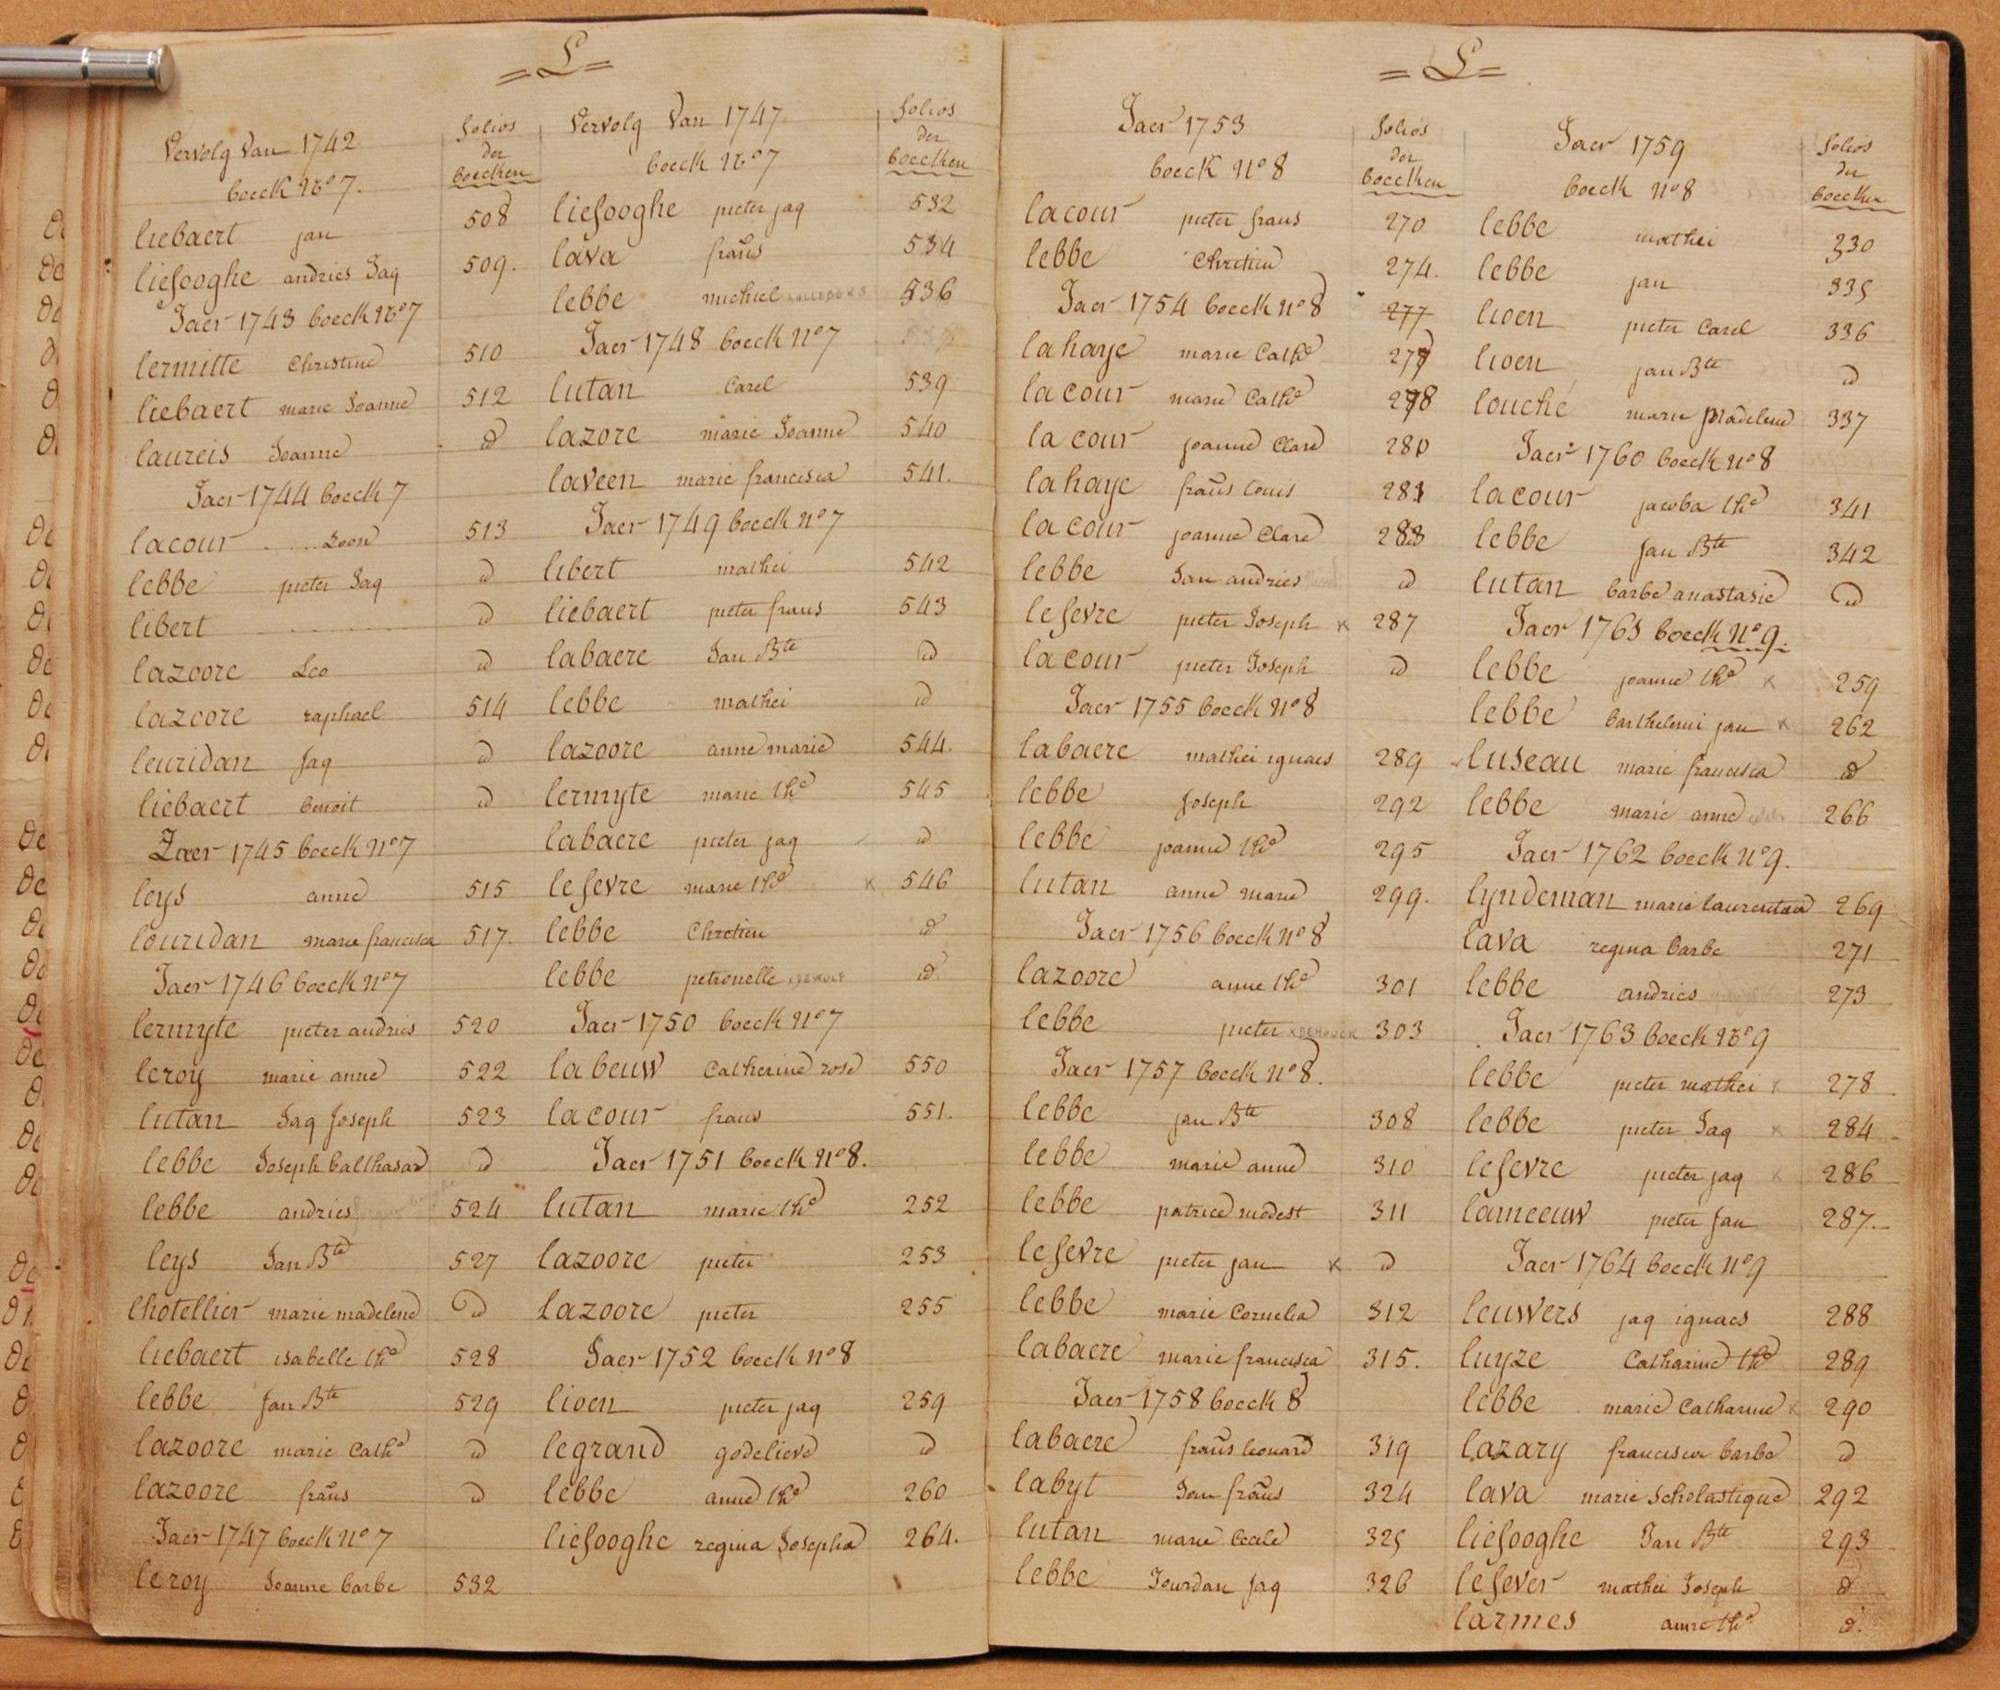 = L =
Vervolg Van 1742
boeck No 7.
folios
der
boecken
liebaert jan 508
liefooghe andries Jaq 509.
Jaer 1743 boeck No 7
lermitte Christine 510
liebaert marie Joanne 512
laureis Joanne id
Jaer 1744 boeck 7
lacour .....Leon 513
lebbe pieter Jaq id
libert ......... id
lazoore Leo id
lazoore raphael 514
leuridan Jaq id
liebaert benoit id
Jaer 1745 boeck No 7
leys anne 515
louridan marie francisca 517.
Jaer 1746 boeck No 7
lermyte pieter andries 520
leroy marie anne 522
lutan Jaq Joseph 523
lebbe Joseph balthasar id
lebbe andries 524
leys Jan Bte 527
lhotellier marie madelene id
liebaert isabelle the 528
lebbe Jan Bte 529
lazoore marie Cathe id
lazoore frans id
Jaer 1747 boeck No 7
leroy Joanne barbe 532
Vervolg Van 1747
boeck No 7
folios
der
boecken
liefooghe pieter jaq 532
lava frans 534
lebbe michiel 536
Jaer 1748 boeck No 7
lutan Carel 539
lazore marie Joanne 540
laveen marie francisca 541.
Jaer 1749 boeck No 7
libert mathei 542
liebaert pieter frans 543
labaere Jan Bte id
lebbe mathei id
lazoore anne marie 544.
lermyte marie the 545
labaere pieter jaq id
lefevre marie the x 546
lebbe Chretien id
lebbe petronelle id
Jaer 1750 boeck No 7
labeuw Catherine rose 550
lacour frans 551.
Jaer 1751 boeck No 8.
lutan marie the 252
lazoore pieter 253
lazoore pieter 255
Jaer 1752 boeck No 8
lioen pieter jaq 259
legrand godelieve id
lebbe anne the 260
liefooghe regina Josepha 264.
= L =
Jaer 1753
boeck No 8
folios
der
boecken
lacour pieter frans 270
lebbe Chretien 274.
Jaer 1754 boeck No 8 277
lahaye marie Cathe 277
lacour marie Cathe 278
lacour joanne Clare 280
lahaye frans louis 281
lacour joanne Clare 283
lebbe Jan andries id
lefevre pieter Joseph x 287
lacour pieter Joseph id
Jaer 1755 boeck No 8
labaere mathei ignaes 289
lebbe Joseph 292
lebbe joanne the 295
lutan anne marie 299.
Jaer 1756 boeck No 8
lazoore anne the 301
lebbe pieter 303
Jaer 1757 boeck No 8.
lebbe jan Bte 308
lebbe marie anne 310
lebbe patrice modest 311
lefevre pieter jan x id
lebbe marie Cornelia 312
labaere marie francisca 315.
Jaer 1758 boeck 8
labaere frans leonard 319
labyt Jan frans 324
lutan marie Cecile 325
lebbe Jourdan Jaq 326
Jaer 1759
boeck No 8
folios
der
boecken
lebbe mathei 330
lebbe jan 335
lioen pieter Carel 336
lioen jan Bte id
louché marie Madelene 337
Jaer 1760 boeck No 8
lacour jacoba the 341
lebbe Jan Bte 342
lutan barbe anastasie id
Jaer 1761 boeck No 9.
lebbe joanne the x 259
lebbe barthelemi jan x 262
luseau marie francisca id
lebbe marie anne 266
Jaer 1762 boeck No 9.
lyndeman marie laurentia 269
lava regina barbe 271
lebbe andries 273
Jaer 1763 boeck No 9
lebbe pieter mathei x 278
lebbe pieter Jaq x 284
lefevre pieter jaq x 286
lameeuw pieter Jan 287.
Jaer 1764 boeck No 9
leuwers jaq ignaes 288
luyze Catharine the 289
lebbe marie Catharine x 290
lazary francisca barbe id
lava marie Scholastique 292
liefooghe Jan Bte 293
lefever mathei Joseph id
larmes anne the id.